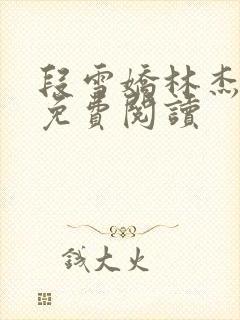 段雪嬌林杰
免費閱讀
錢大火